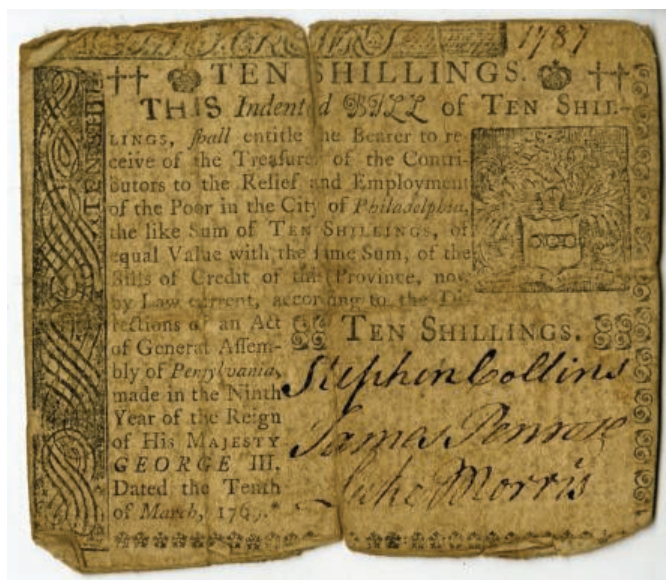 1787
TEN SHILLINGS.
THIS Indented BILL of TEN SHIL-
LINGS, shall entitle the Bearer to re-
ceive of the Treasurer of the Contri-
butors to the Relief and Employment
of the Poor in the City of Philadelphia,
the like Sum of TEN SHILLINGS, of
equal Value with the same Sum, of the
Bills of Credit of this Province, now
by Law current, according to the Di-
rections of an Act
of General Assem-
bly of Pensylvania,
made in the Ninth
Year of the Reign
of His MAJESTY
GEORGE III.
Dated the Tenth
of March, 1769.*
TEN SHILLINGS.
Stephen Collins
James Penrose
Luke Morris
TEN SHIL